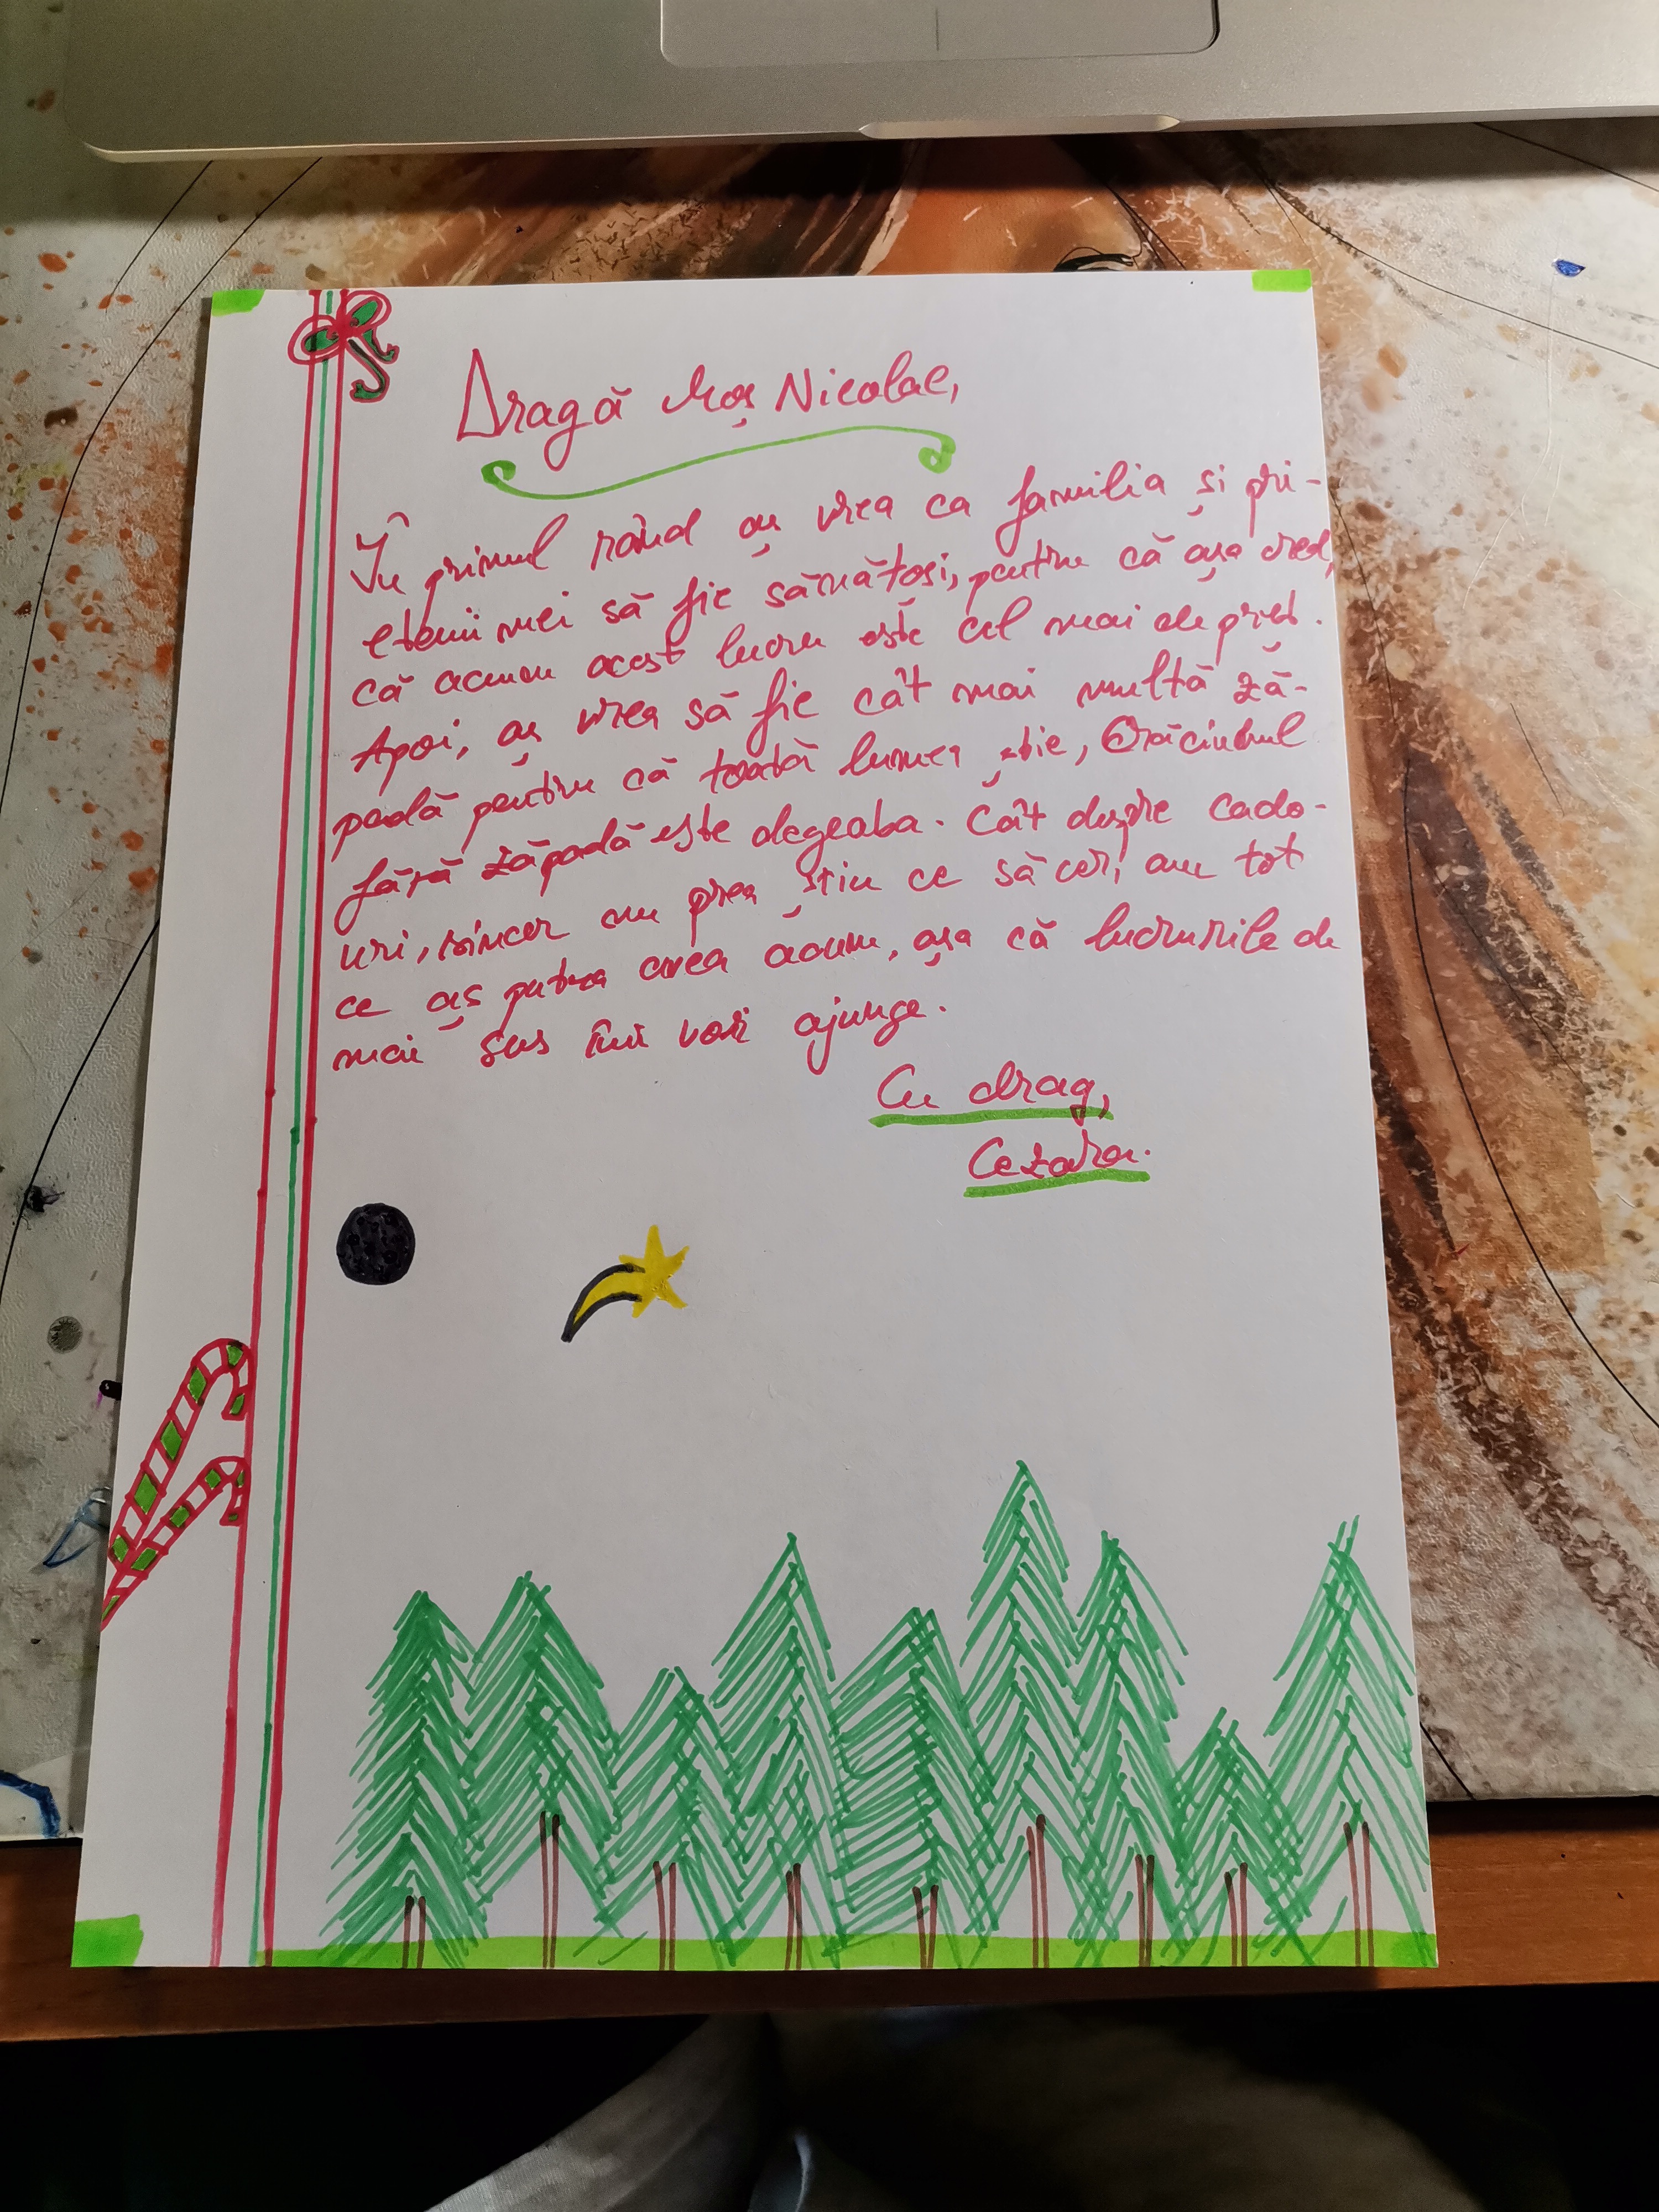 Dragă Moș Nicolae,
În primul rând aș vrea ca familia și pri-
etenii mei să fie sănătoși, pentru că așa cred,
că acum acest lucru este cel mai de preț.
Apoi, aș vrea să fie cât mai multă ză-
padă pentru că toată lumea știe, Crăciunul
fără zăpadă este degeaba. Cât despre cado-
uri, sincer nu prea știu ce să cer, am tot
ce aș putea avea acum, așa că lucrurile de
mai sus îmi vor ajunge.
Cu drag,
Cezara.